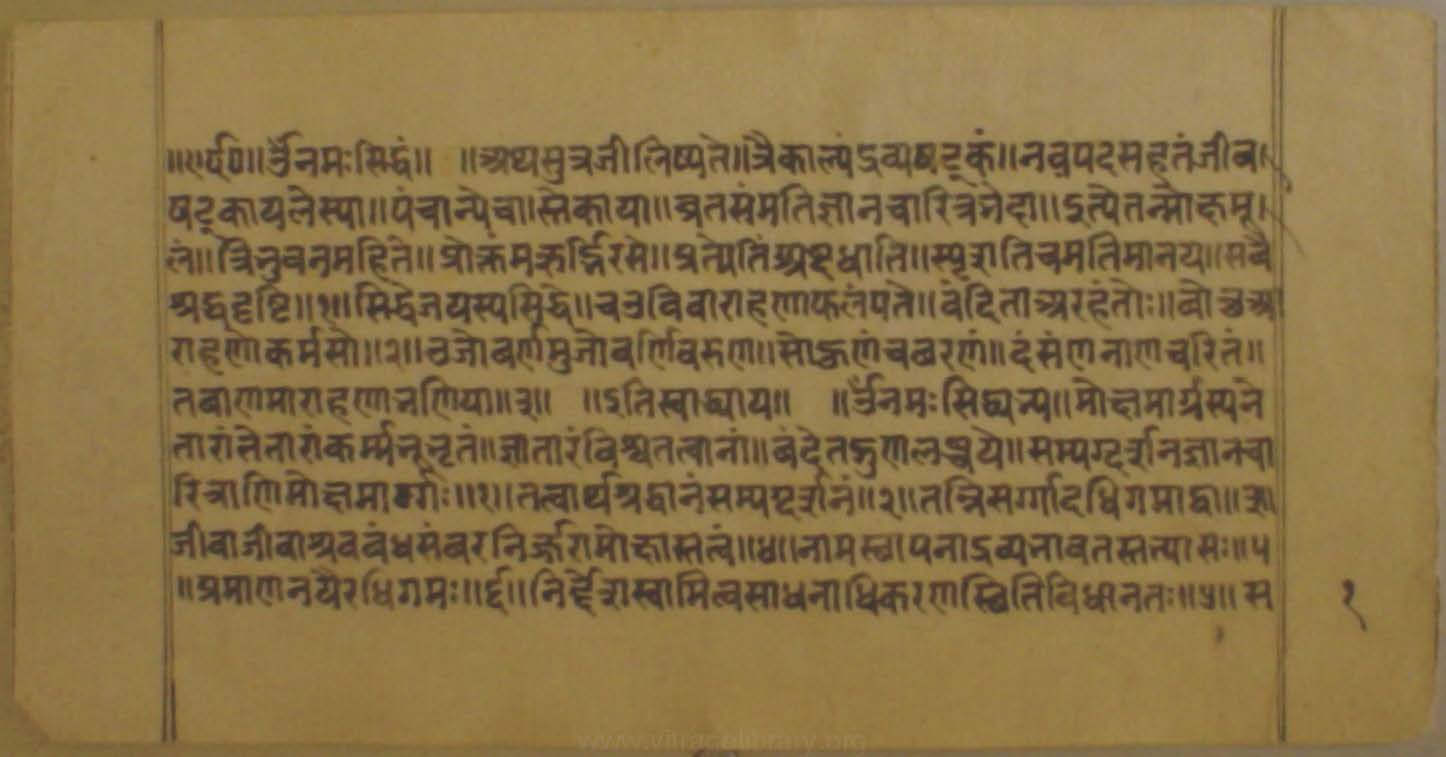 ॥ए६०॥ॐनमःसिद्धं॥ ॥अथसुत्रजीलिष्यते॥त्रैकाल्यंद्रव्यषट्कं॥नवपदसहतंजीव।
षट्कायलेस्या॥पंचान्येचा।स्तिकाया॥व्रतसंमतिज्ञानचारित्रभेदा॥इत्येतन्मोक्षमू।
लं॥त्रिभुवनमहितं॥प्रोक्तमर्हद्भिरसे॥प्रत्येतिश्रद्दधाति॥स्पृशतिचमतिमानय॥सवै
श्रद्धदृष्टि॥१॥सिद्धेजयस्पसिद्धे॥चउविवाराहणाफलंपते॥वंदिताअरहंतोः॥वोछंअ
राहणाकर्मसो॥२॥उजोवर्णमुजोवर्णिवरुण॥सोझणंचबरणं॥दंसंणनाणचरितं॥
तवाणमाराहणाभणिया॥३॥ ॥इतिस्वाद्याय॥ ॥ॐनमःसिद्येन्य॥मोक्षमार्गस्यने
तारंभेतारंकर्म्मभूभृतं॥ज्ञातारंविश्वतत्वानां॥बंदेतद्गुणलब्धये॥सम्यग्दर्शनज्ञानचा
रित्राणिमोक्षमार्ग्गः॥१॥तत्वार्थश्रद्धानंसम्यग्दर्शनं॥२॥तन्निसर्ग्गादधिगमाद्वा॥३॥
जीवाजीवाश्रवबंधसंबरनिर्ज्जरामोक्षास्तत्वं॥४॥नामस्थापनाद्रव्यभावतस्तन्यासः॥५
॥प्रमाणनयैरधिगमः॥६॥निर्द्देशस्वामित्वसाधनाधिकरणस्थितिविधानतः॥७॥स
१
www.vitragelibrary.org